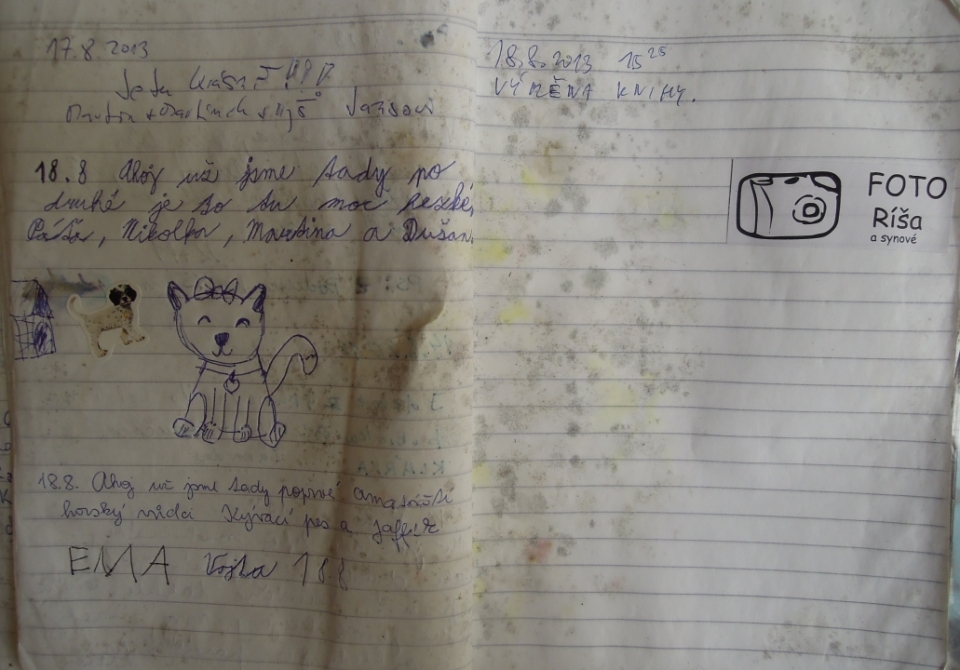 17.8.2013
18.8 Ahoj už jsme tady po
druhé je to tu moc hezké,
Páťa, Nikolka, Martina a Dušan.
18.8. Ahoj už jsme tady poprvé
horský vůdci Kývací pes a
EMA Vojta 18 8
18.8.2013 15 25
VÝMĚNA KNIHY.
FOTO
Ríša
a synové